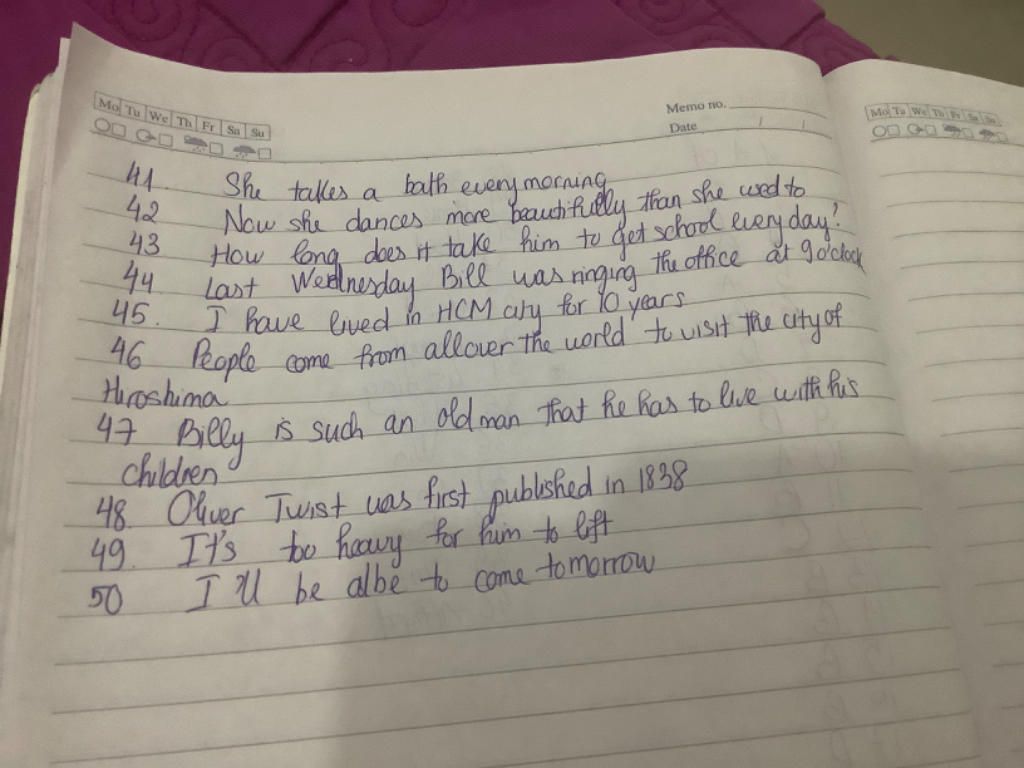 Mo Tu We Th Fr Sa Su
Memo no.
Date / /
Mo Tu We Th Fr Sa Su
41. She takes a bath every morning
42 Now she dances more beautifully than she used to
43 How long does it take him to get school every day?
44 Last Wednesday Bill was ringing the office at 9 o'clock
45. I have lived in HCM city for 10 years
46 People come from all over the world to visit the city of
Hiroshima
47 Billy is such an old man that he has to live with his
children
48. Oliver Twist was first published in 1838
49. It's too heavy for him to left
50 I'll be albe to come tomorrow